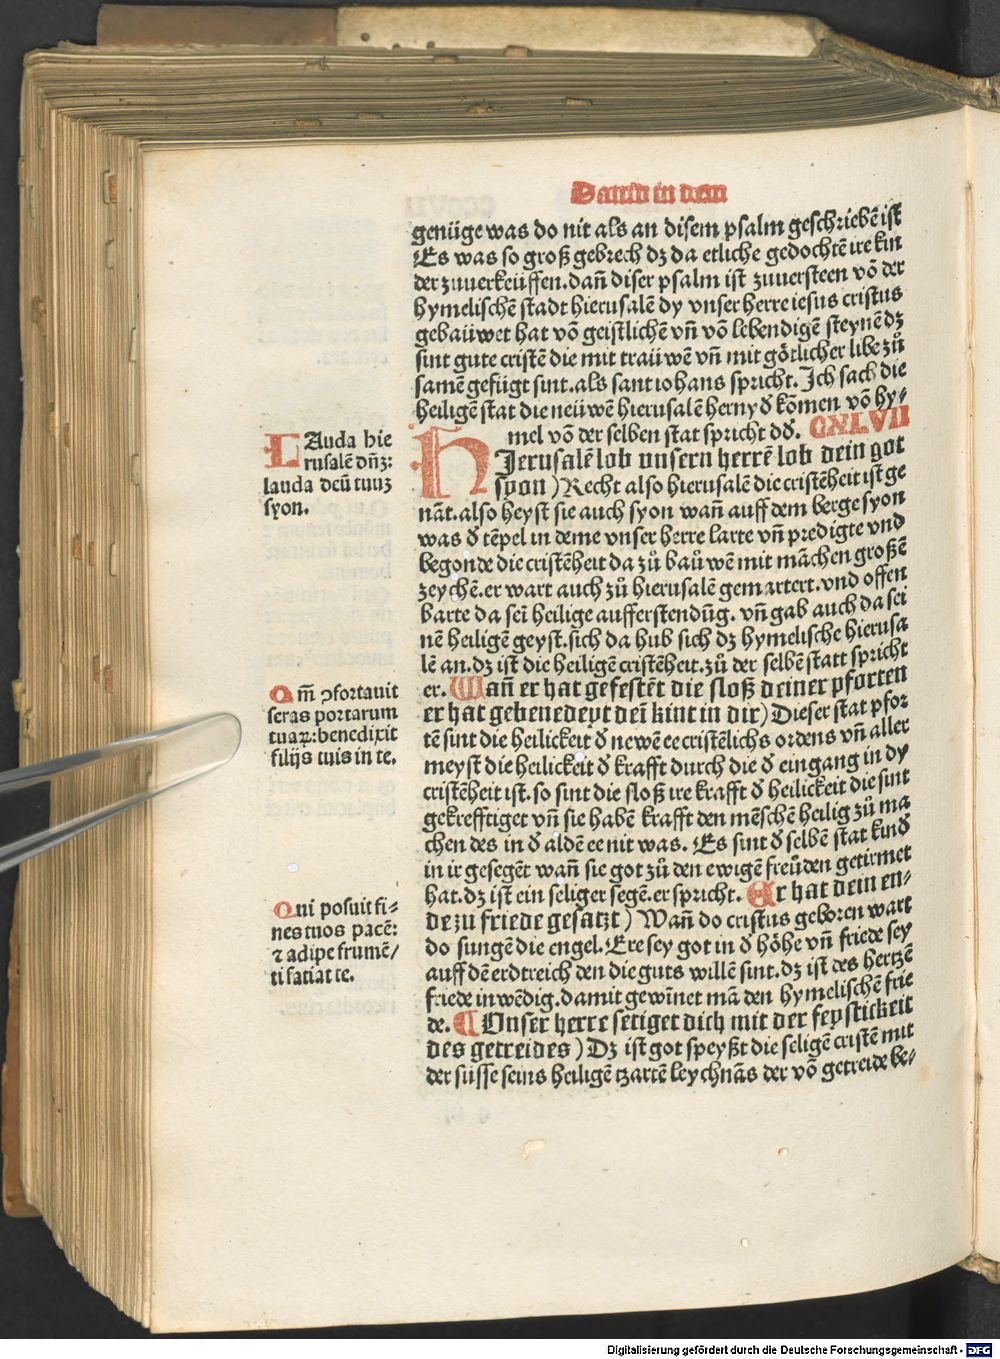 Dauid in dem
genüge was do nit als an disem psalm geschriebē ist
Es was so groß gebrech dz da etliche gedochtē ire kin
der zuuerkeüffen. dañ diser psalm ist zuuersteen vō der
hymelischē stadt hierusalē dy vnser herre iesus cristus
gebaüwet hat vō geistlichē vñ vō lebendigē steynē dz
sint gute cristē die mit traüwē vñ mit götlicher libe zů
samē gefügt sint. als sant iohans spricht. Ich sach die
heiligē stat die neüwē hierusalē herny ď kōmen vō hy⸗
mel vō der selben stat spricht dď. CXLVII
HJerusalē lob vnsern herrē lob dein got
syon) Recht also hierusalē die cristēheit ist ge
nāt. also heyst sie auch syon wañ auff dem berge syon
was ď tēpel in deme vnser herre larte vñ predigte vnd
begonde die cristēheit da zů baůwē mit māchen großē
zeychē. er wart auch zů hierusalē gemartert. vnd offen
barte da sei heilige aufferstendūg. vñ gab auch da sei
nē heiligē geyst. sich da hub sich dz hymelische hierusa
lē an. dz ist die heiligē cristēheit. zů der selbē statt spricht
er. Wañ er hat gefestēt die sloß deiner pforten
er hat gebenedeyt dei kint in dir) Dieser stat pfor
tē sint die heilickeit ď newē ee cristēlichs ordens vñ aller
meyst die heilickeit ď krafft durch die ď eingang in dy
cristēheit ist. so sint die sloß ire krafft ď heilickeit die sint
gekrefftiget vñ sie habē krafft den mēschē heilig zů ma
chen des in ď aldē ee nit was. Es sint ď selbē stat kinď
in ir gesegēt wañ sie got zů den ewigē freůden getirmet
hat. dz ist ein seliger segē. er spricht. Er hat dein en⸗
de zu friede gesatzt) Wañ do cristus geboren wart
do sungē die engel. Ere sey got in ď höhe vñ friede sey
auff dē erdtreich den die guts willē sint. dz ist des hertzē
friede inwēdig. damit gewinet mā den hymelischē frie
de. Unser herre setiget dich mit der feystickeit
des getreides) Dz ist got speyßt die seligē cristē mit
der süsse seins heiligē tzartē leychnās der vō getreide be⸗
LAuda hie
rusalē dñz:
lauda deū tuuz
syon.
Qm̄ ꝯfortauit
seras portarum
tuaꝝ: benedixit
filijs tuis in te.
Qui posuit fi⸗
nes tuos pacē:
⁊ adipe frumē/
ti satiat te.
Digitalisierung gefördert durch die Deutsche Forschungsgemeinschaft - DFG